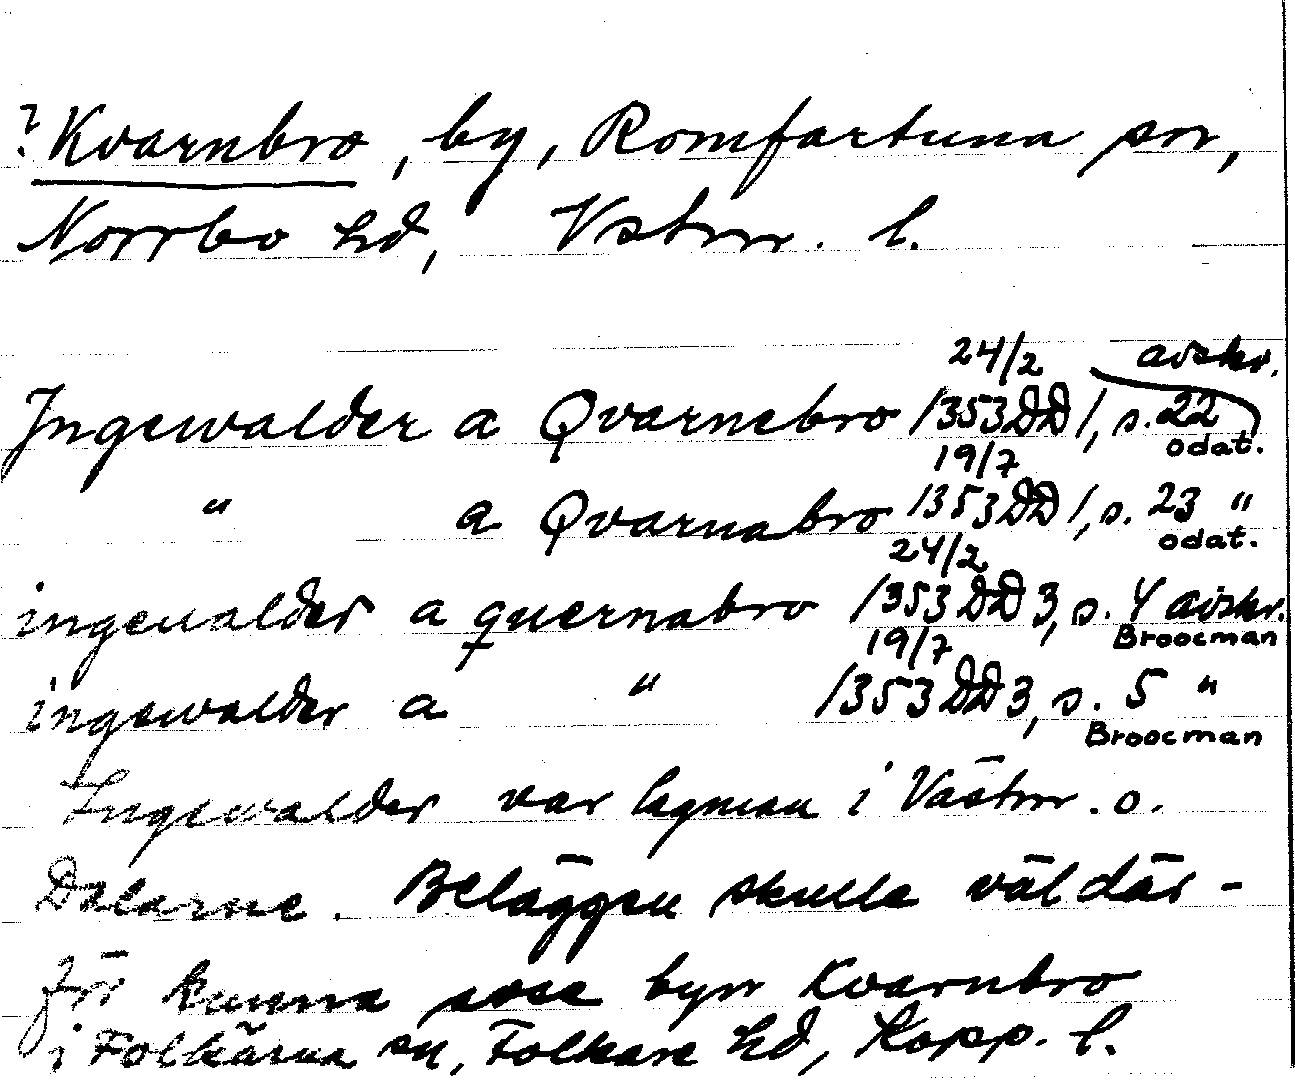 ? Kvarnbro, by, Romfartuna sn,
Norrbo hd, Vstm. l.
Ingewalder a Qvarnebro 24/2 1353 DD 1, s. 22 avskr. odat.
" a Qvarnabro 19/7 1353 DD 1, s. 23 " odat.
ingeualder a quernabro 24/2 1353 DD 3, s. 4 avskr. Broocman
ingewalder a " 19/7 1353 DD 3, s. 5 " Broocman
Ingewalder var lagman i Västm. o.
Dalarne. Beläggen skulle väl där-
för kunna avse byn Kvarnbro
i Folkärna sn, Folkare hd, Kopp. l.